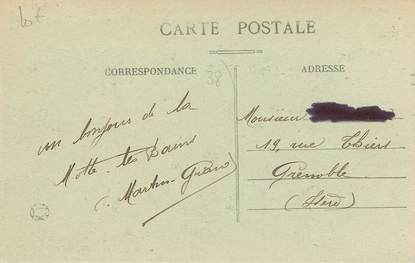 lot
CARTE POSTALE
CORRESPONDANCE
38
ADRESSE
un bonjour de la
Motte-les-Bains
Monsieur
19, rue Thiers
Grenoble
(Isère)